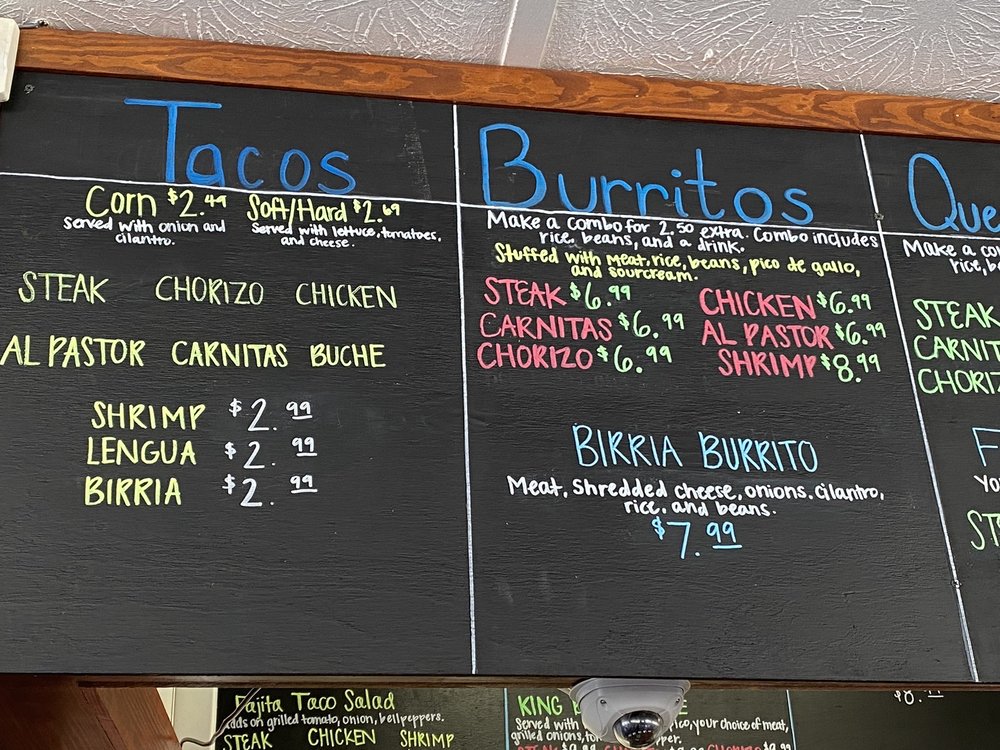 Tacos
Corn $2.49 Soft/Hard $2.69
served with onion and cilantro.
Served with lettuce, tomatoes, and cheese.
STEAK CHORIZO CHICKEN
AL PASTOR CARNITAS BUCHE
SHRIMP $2.99
LENGUA $2.99
BIRRIA $2.99
Burritos
Make a combo for 2.50 extra. Combo includes
rice, beans, and a drink.
Stuffed with meat, rice, beans, pico de gallo,
and sourcream.
STEAK $6.99 CHICKEN $6.99
CARNITAS $6.99 AL PASTOR $6.99
CHORIZO $6.99 SHRIMP $8.99
BIRRIA BURRITO
Meat, shredded cheese, onions, cilantro,
rice, and beans.
$7.99
Que
Make a co
rice, b
STEAK
CARNIT
CHORIZ
F
Yo
ST
$8.99
Fajita Taco Salad
adds on grilled tomato, onion, bellpeppers.
STEAK CHICKEN SHRIMP
KING
Served with ico, your choice of meat,
grilled onions, to per.